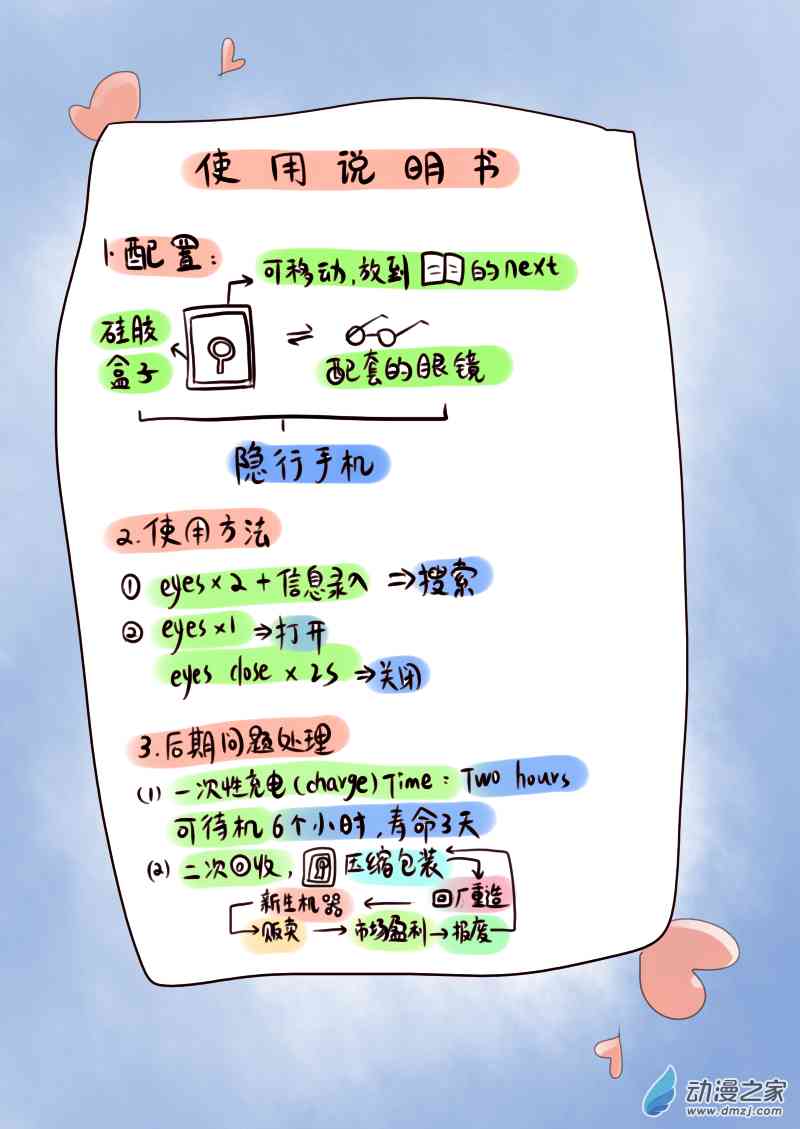 使用说明书
1.配置:
可移动,放到的next
硅胶
盒子
⇌
配套的眼镜
隐行手机
2.使用方法
① eyes×2+信息录入 ⇒搜索
② eyes×1 ⇒打开
eyes close × 2s ⇒关闭
3.后期问题处理
(1) 一次性充电(charge)Time: Two hours
可待机6个小时,寿命3天
(2) 二次回收, 压缩包装
新生机器 ← 回厂重造
→贩卖 → 市场盈利→报废
动漫之家
www.dmzj.com